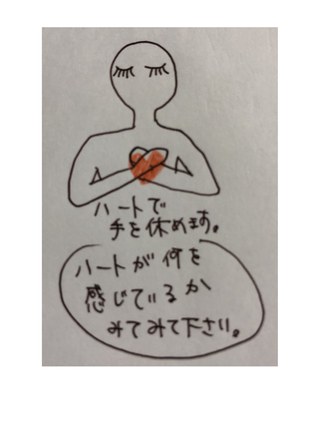 ハートで
手を休めます。
ハートが何を
感じているか
みてみて下さい。